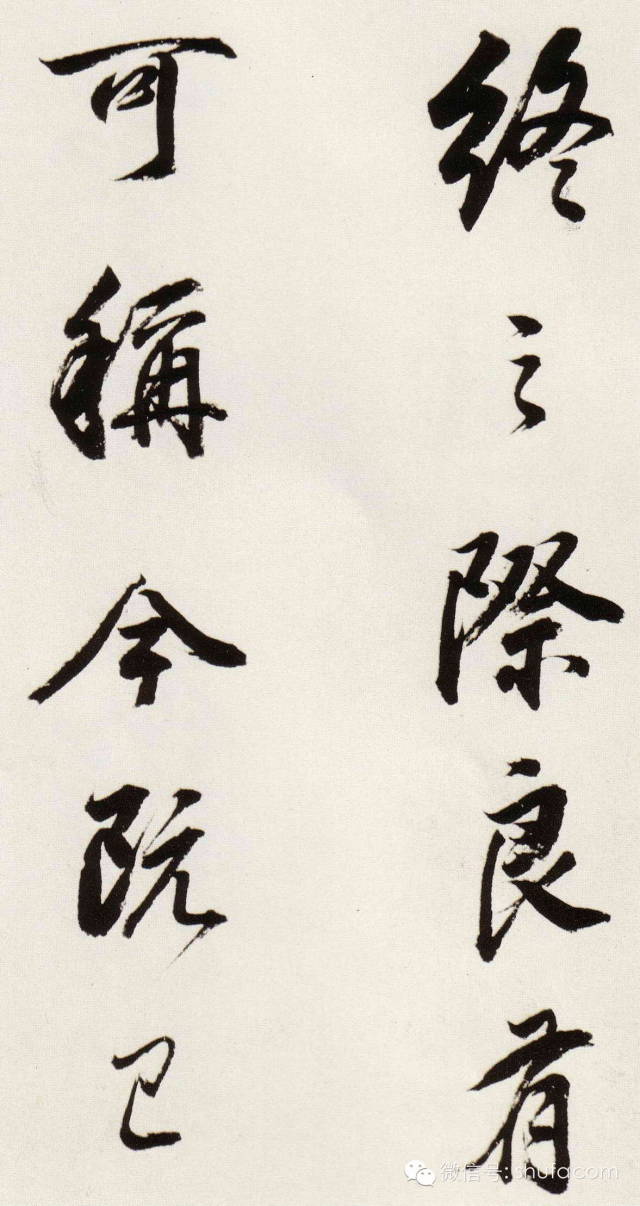 終之際良有
可稱今既已
微信号: shufacom